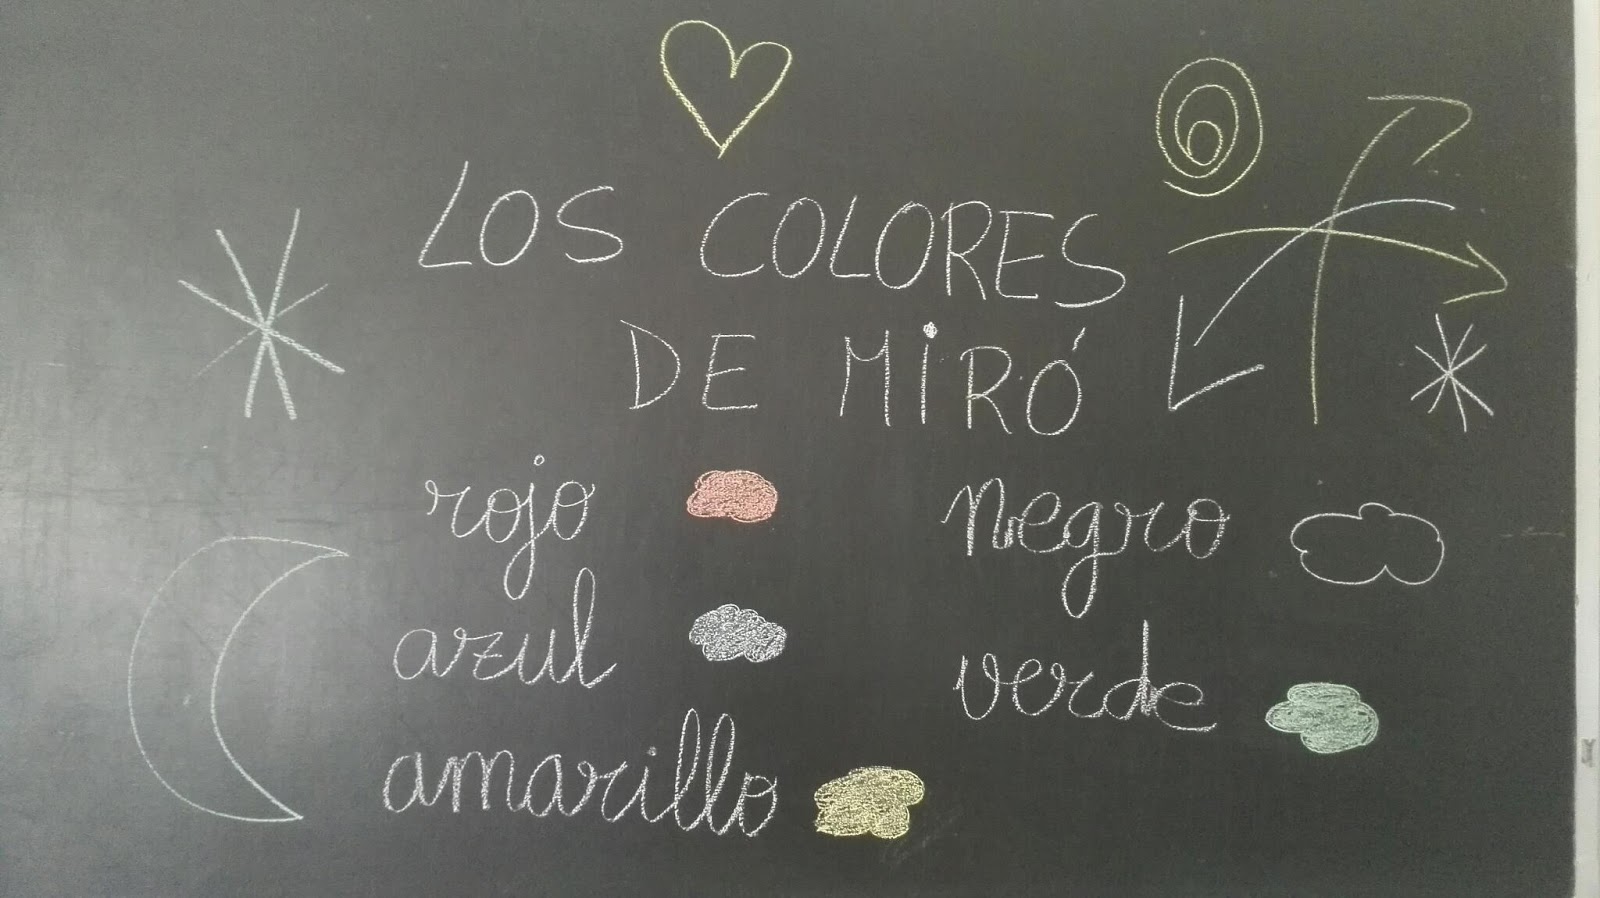 LOS COLORES
DE MiRÓ
rojo
azul
amarillo
negro
verde